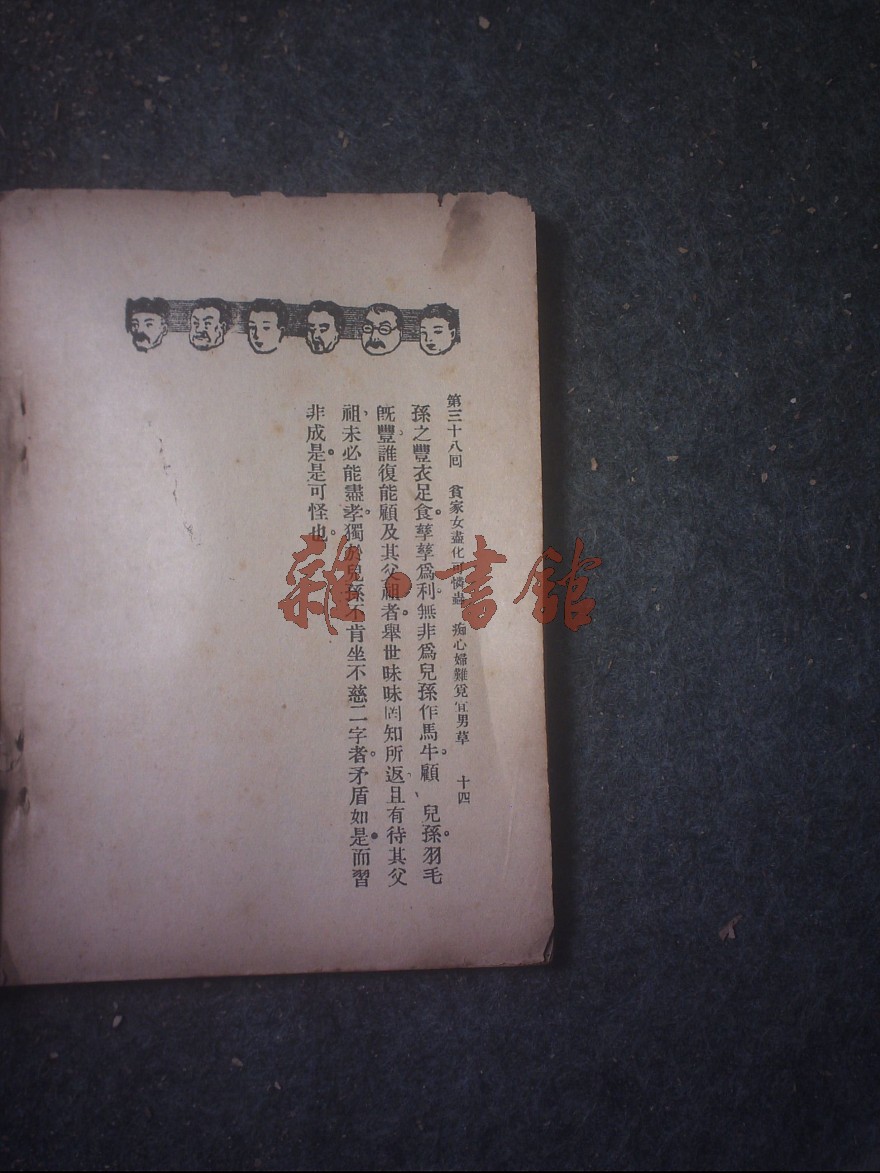 第三十八囘 貧家女盡化可憐蟲 痴心婦難覓宜男草 十四
孫之豐衣足食。孳孳爲利。無非爲兒孫作馬牛。顧、兒孫。羽毛
旣豐。誰復能顧及其父祖者。舉世昧昧罔知所返。且有待其父
祖未必能盡孝。獨於兒孫不肯坐不慈二字者。矛盾如是。而習
非成是。是可怪也。
雜·書館